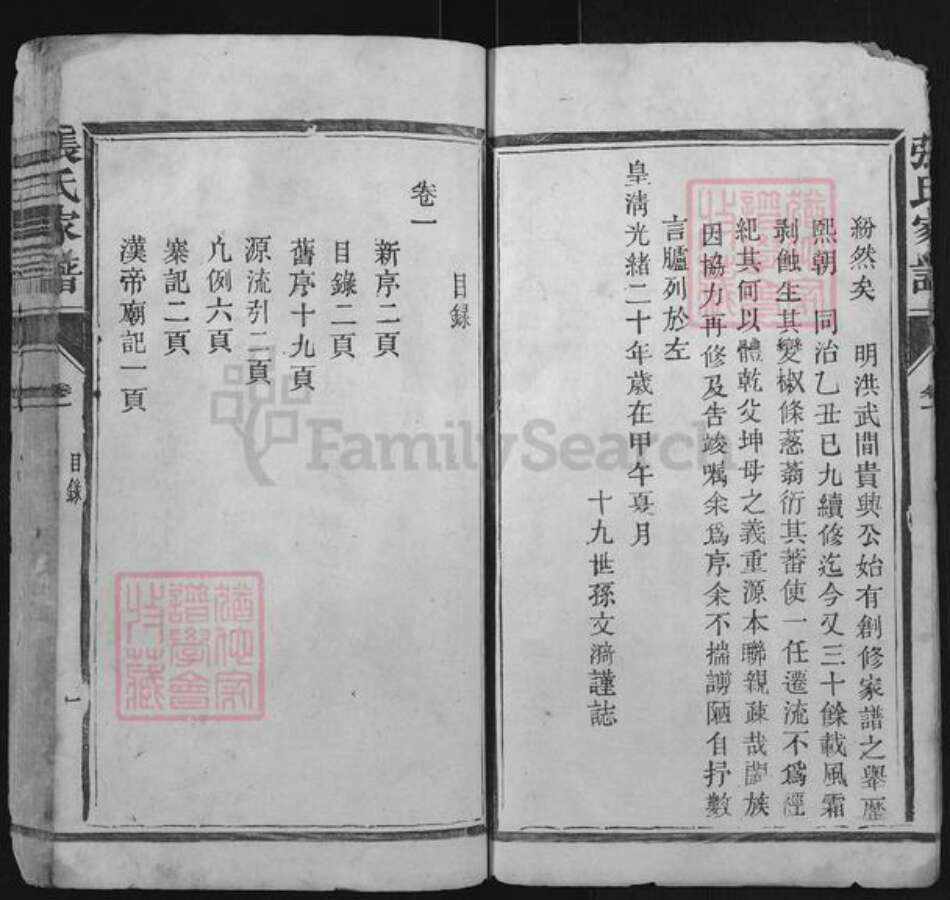 紛然矣　明洪武間貴興公始有創修家譜之舉歷
熙朝　同治乙丑已九續修迄今又三十餘載風霜
剥蝕生其變椒條蔥蓊衍其蕃使一任遷流不爲經
紀其何以體乾父坤母之義重源本聯親疎哉闔族
因協力再修及告竣囑余爲序余不揣謭陋自抒數
言臚列於左
皇清光緒二十年歲在甲午夏月
十九世孫文漪謹誌
張氏家譜
卷一
目錄
卷一
新序二頁
目錄二頁
舊序十九頁
源流引二頁
凡例六頁
寨記二頁
漢帝廟記一頁
張氏家譜
卷一
目錄
一
FamilySearch